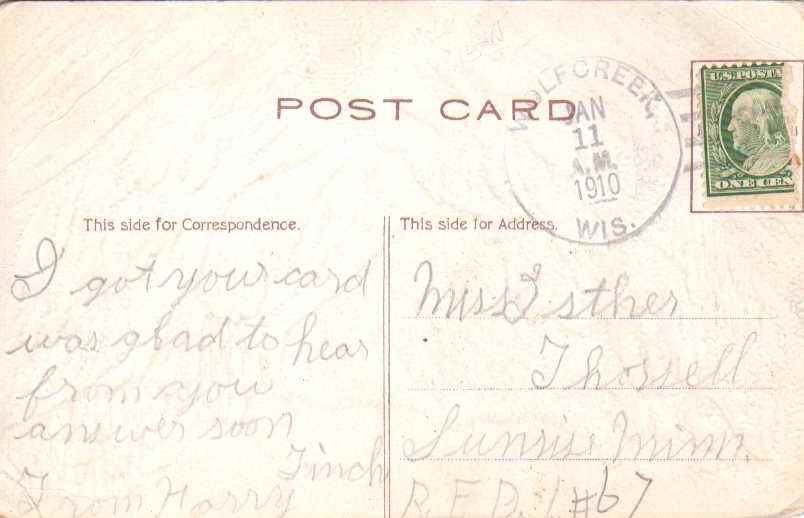 POST CARD
WOLFCREEK,
JAN
11
A.M.
1910
WIS.
U.S. POSTA
ONE CEN
This side for Correspondence.
I got your card
was glad to hear
from you
answer soon
Finch
From Harry
This side for Address.
Miss Esther
Thorsell
Sunrise Minn.
R.F.D. 1 #67